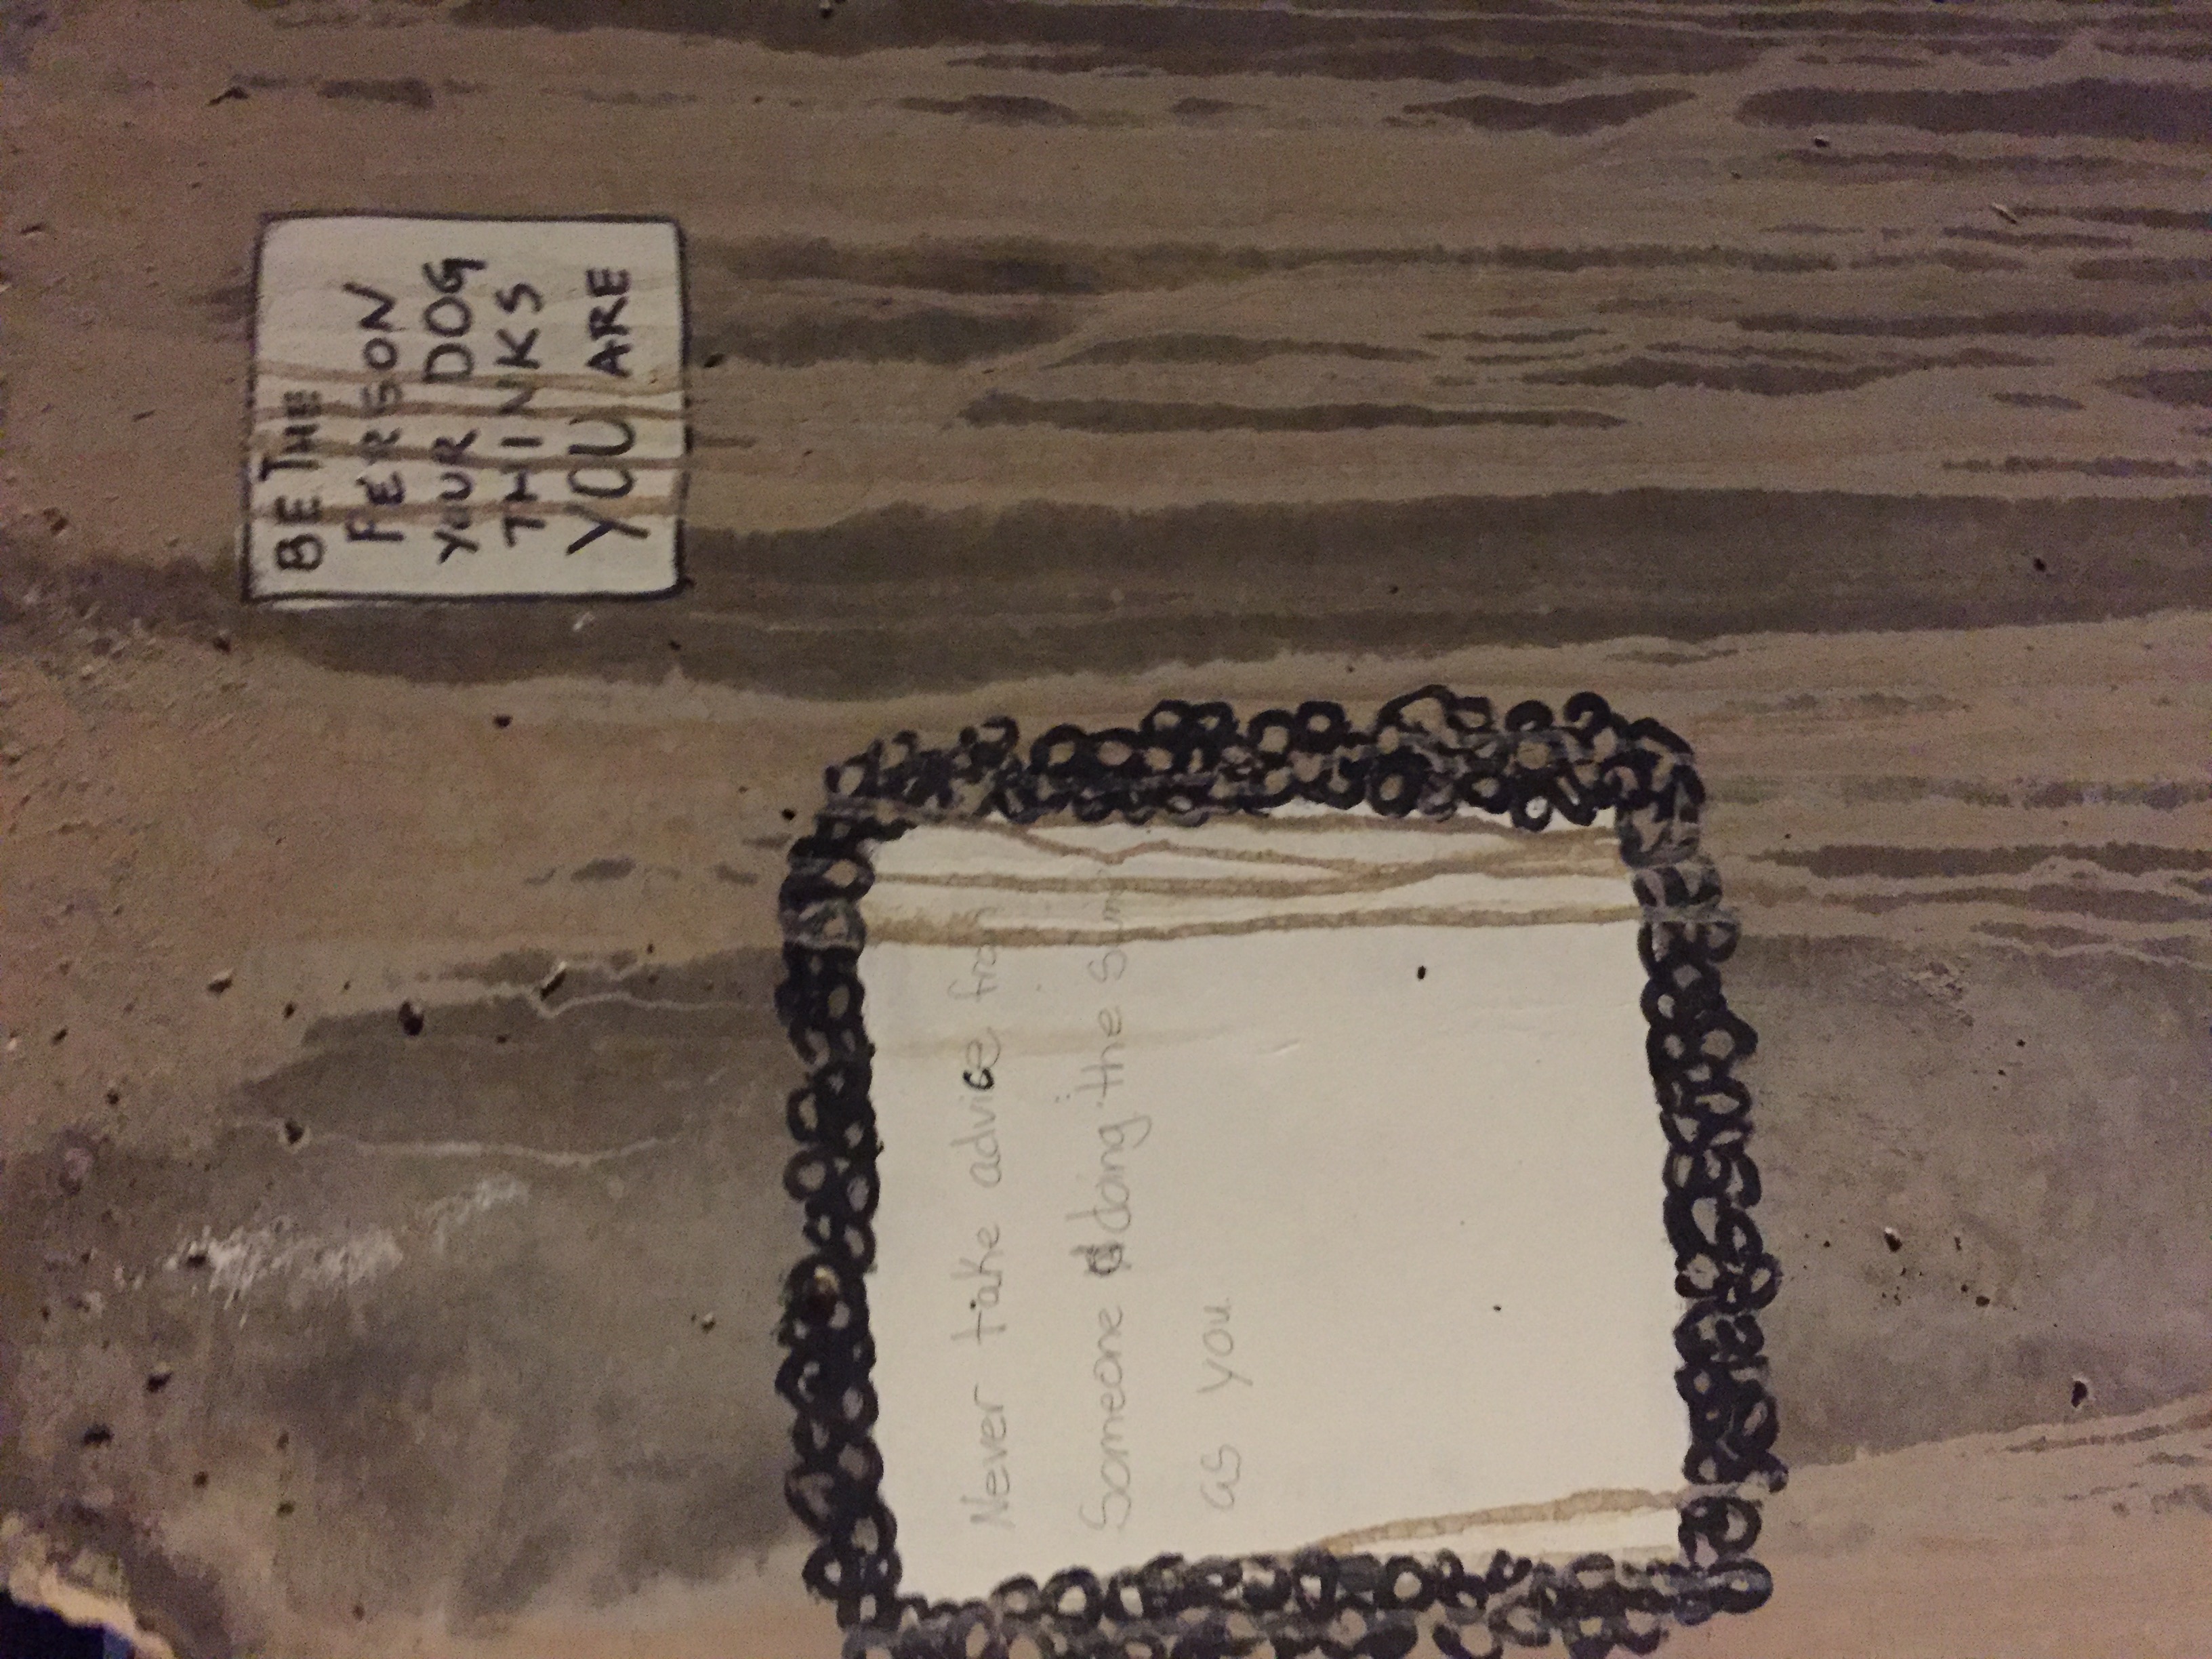 BE THE
PERSON
YOUR DOG
THINKS
YOU ARE
Never take advice from
Someone doing the same
as you.